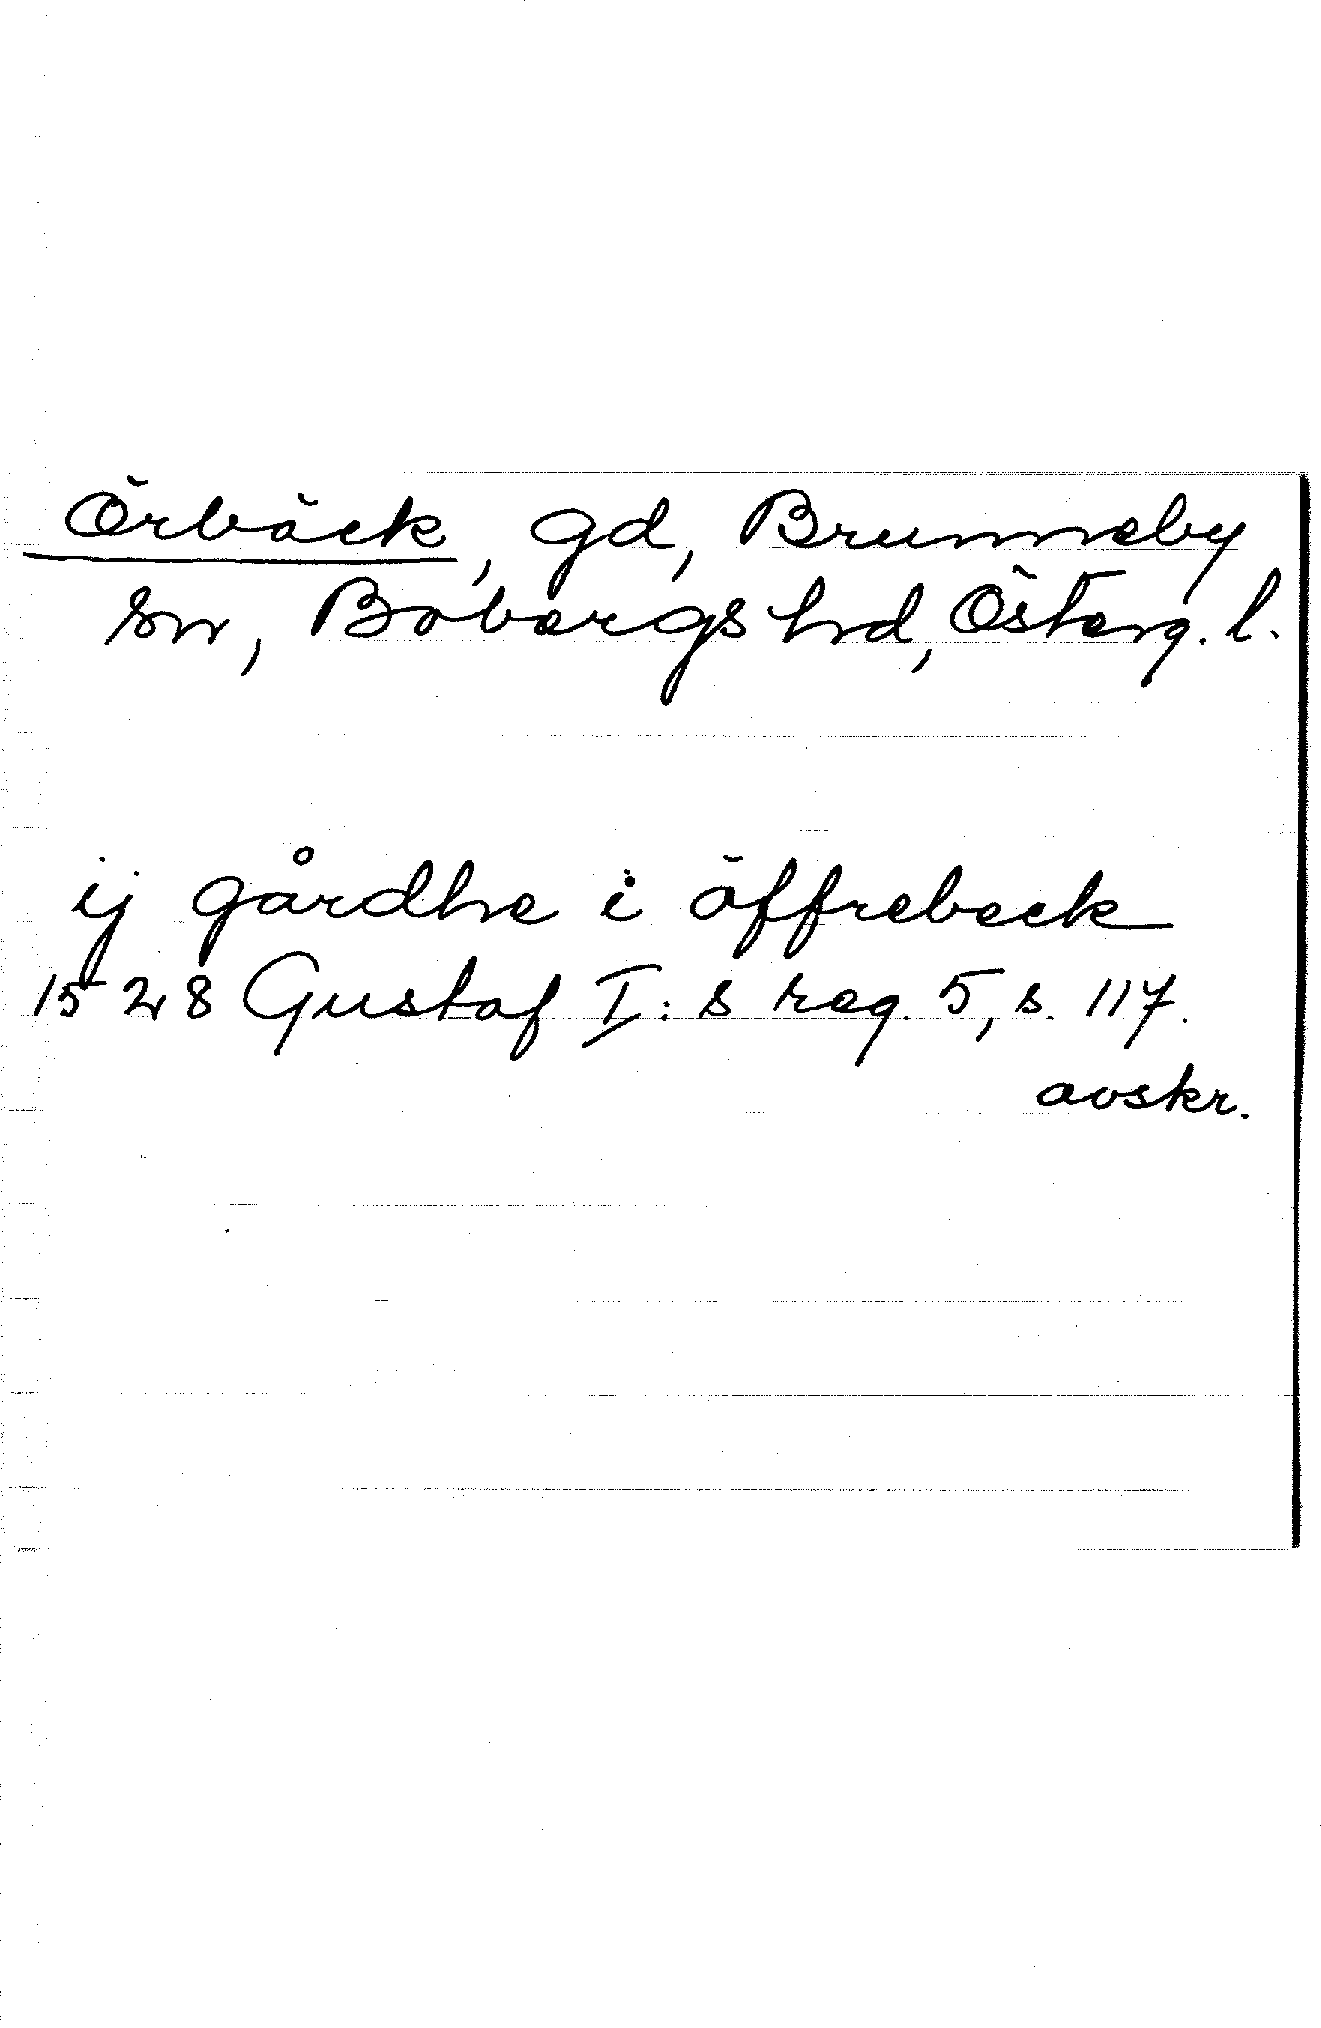 Örbäck, gd, Brunneby
sn, Bobergs hd, Österg. l.
ij gårdhe i öffrebeck
1528 Gustaf I:s reg. 5, s. 117.
avskr.